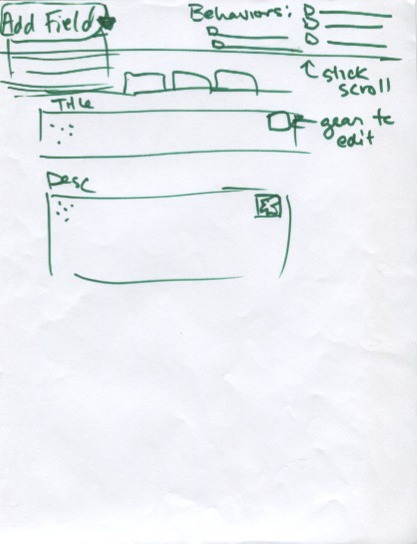 Add Field
Behaviors:
slick
scroll
Title
gear to
edit
Desc